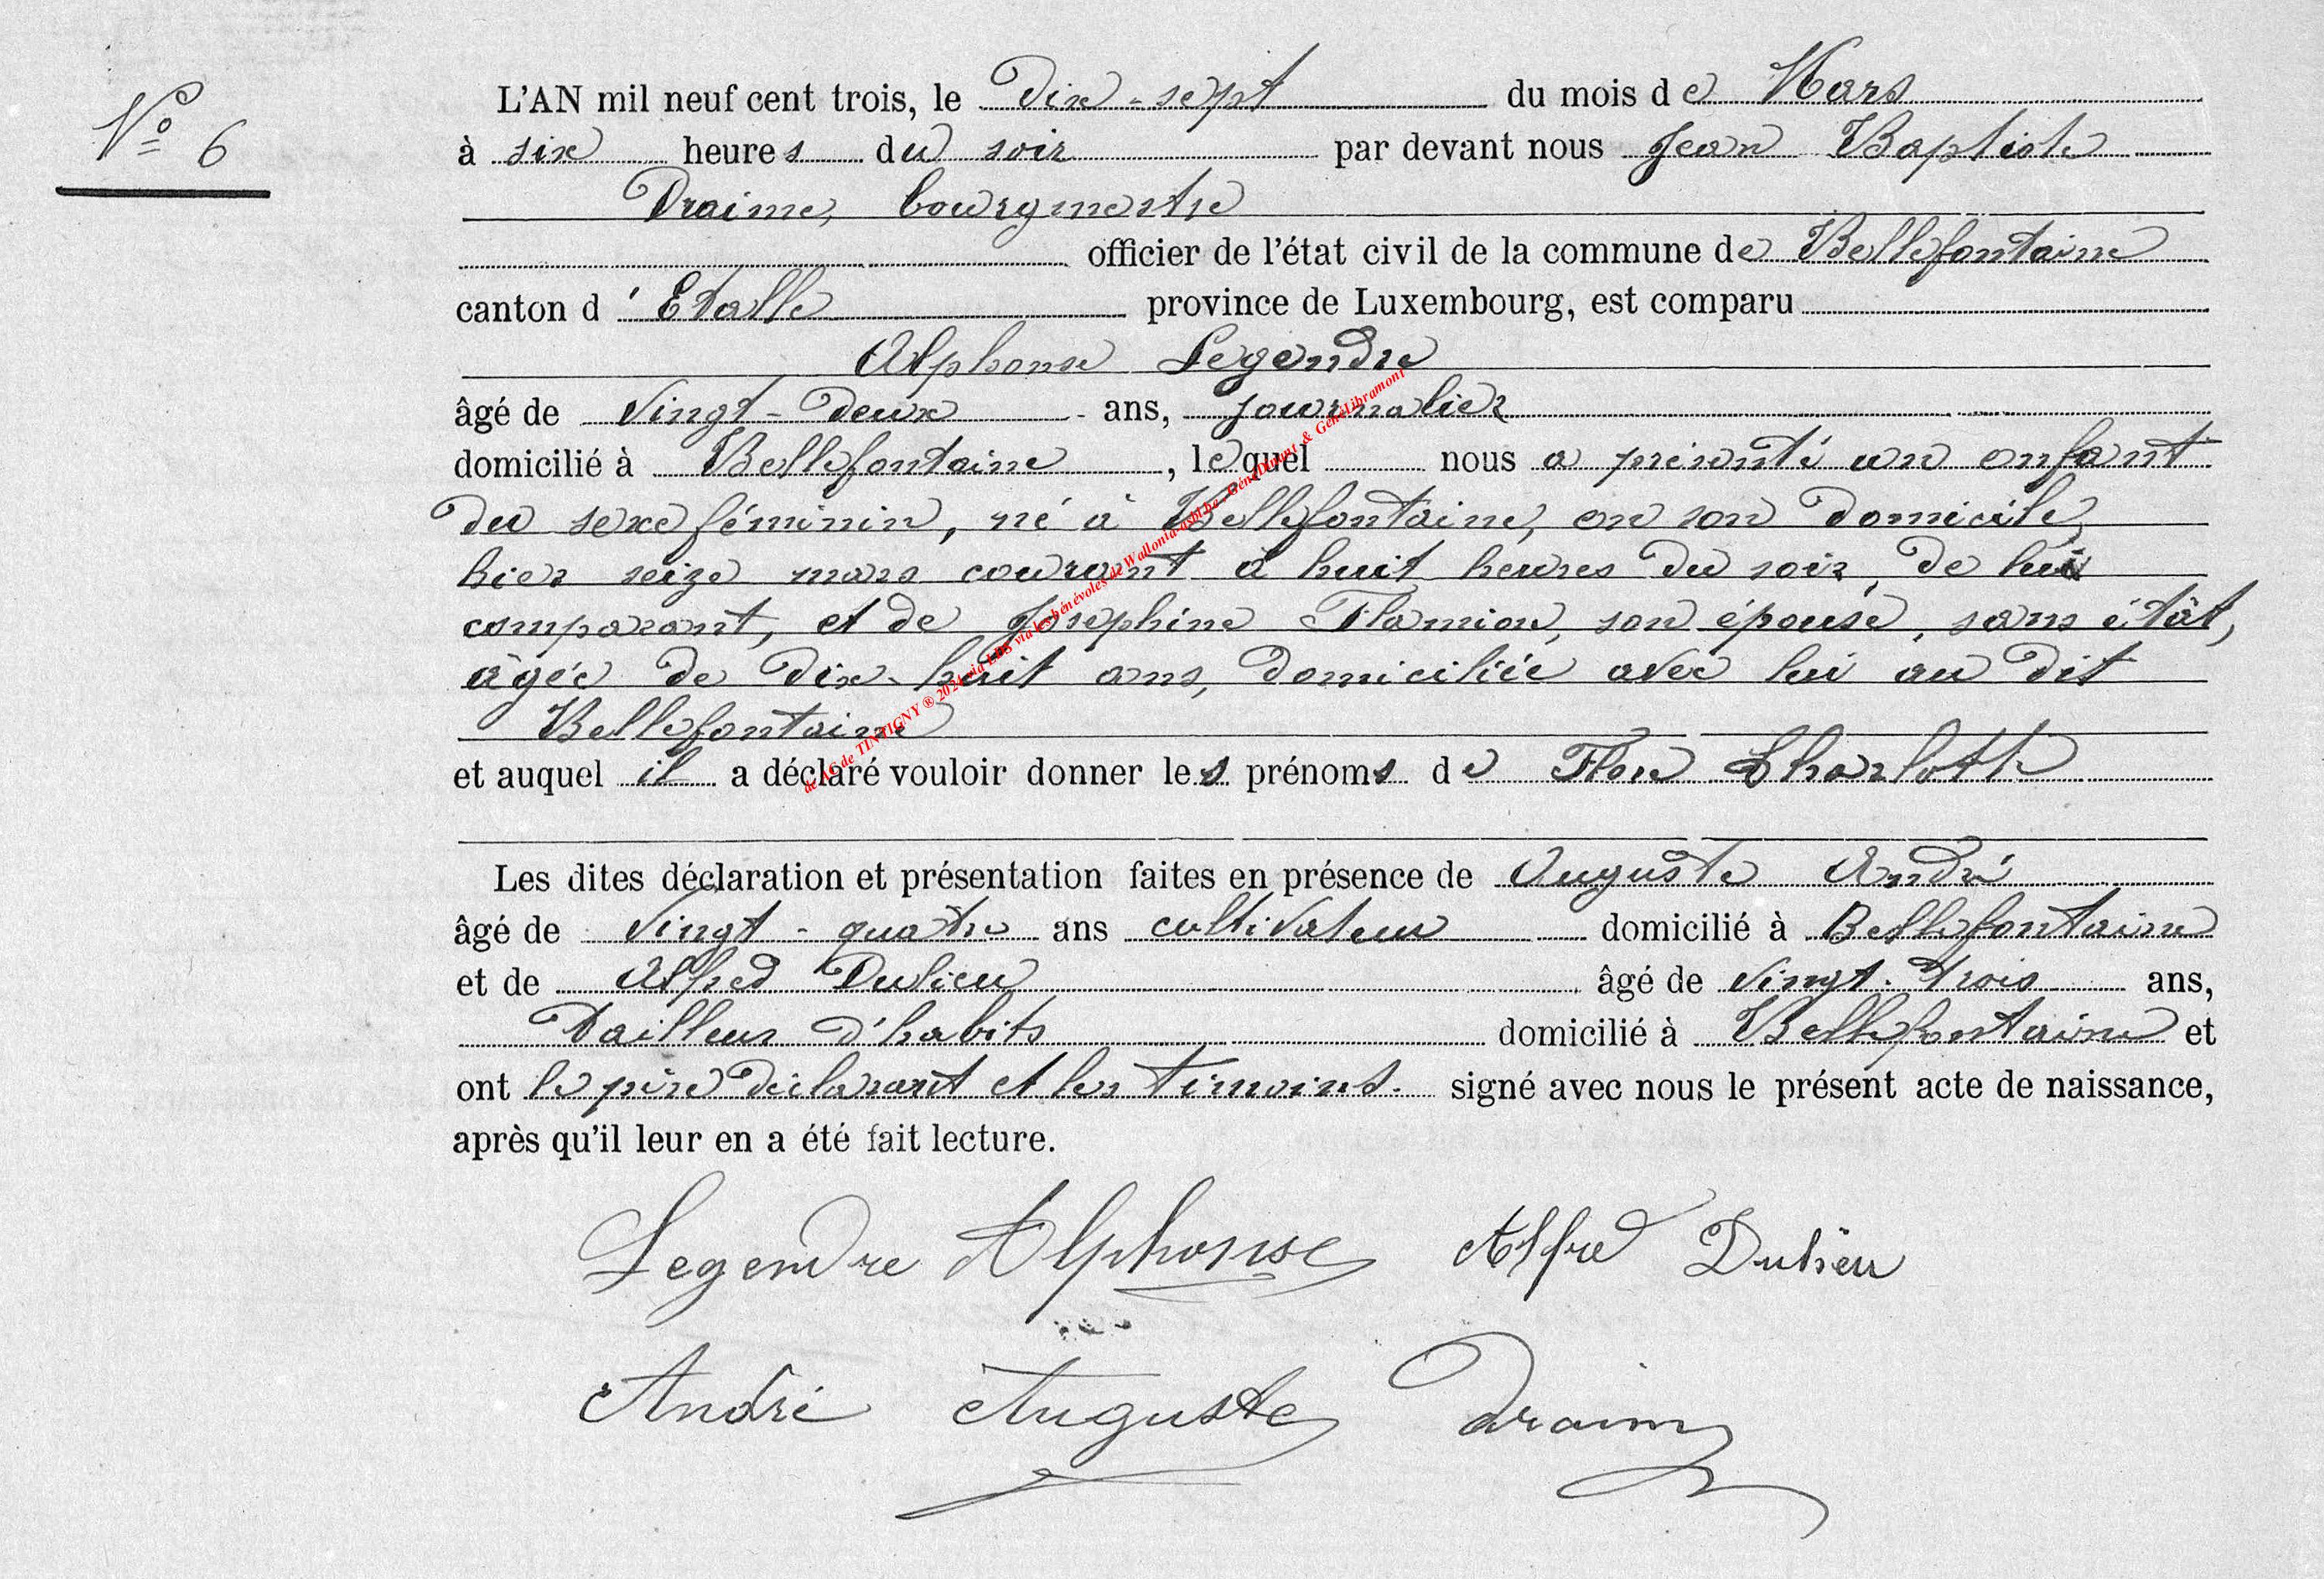 N° 6
L'AN mil neuf cent trois, le Dix-sept du mois de Mars
à six heures du soir par devant nous Jean Baptiste
Draime, bourgmestre
officier de l'état civil de la commune de Bellefontaine
canton d'Etalle province de Luxembourg, est comparu
Alphonse Legendre
âgé de Vingt-Deux ans, journalier
domicilié à Bellefontaine, lequel nous a présenté un enfant
du sexe féminin, né à Bellefontaine, en son domicile,
hier seize mars courant à huit heures du soir, de lui
comparant, et de Joséphine Flamion, son épouse, sans état,
âgée de dix-huit ans, domiciliée avec lui au dit
Bellefontaine
et auquel il a déclaré vouloir donner les prénoms de Flore Charlotte
Les dites déclaration et présentation faites en présence de Auguste André
âgé de Vingt-quatre ans cultivateur domicilié à Bellefontaine
et de Alfred Dulieu âgé de Vingt-trois ans,
Tailleur d'habits domicilié à Bellefontaine et
ont le père déclarant et les témoins signé avec nous le présent acte de naissance,
après qu'il leur en a été fait lecture.
Legendre Alphonse Alfred Dulieu
André Auguste Draime
de AC de TINTIGNY ® 2024 via les bénévoles de Wallonia asbl &amp; GénéLibramont